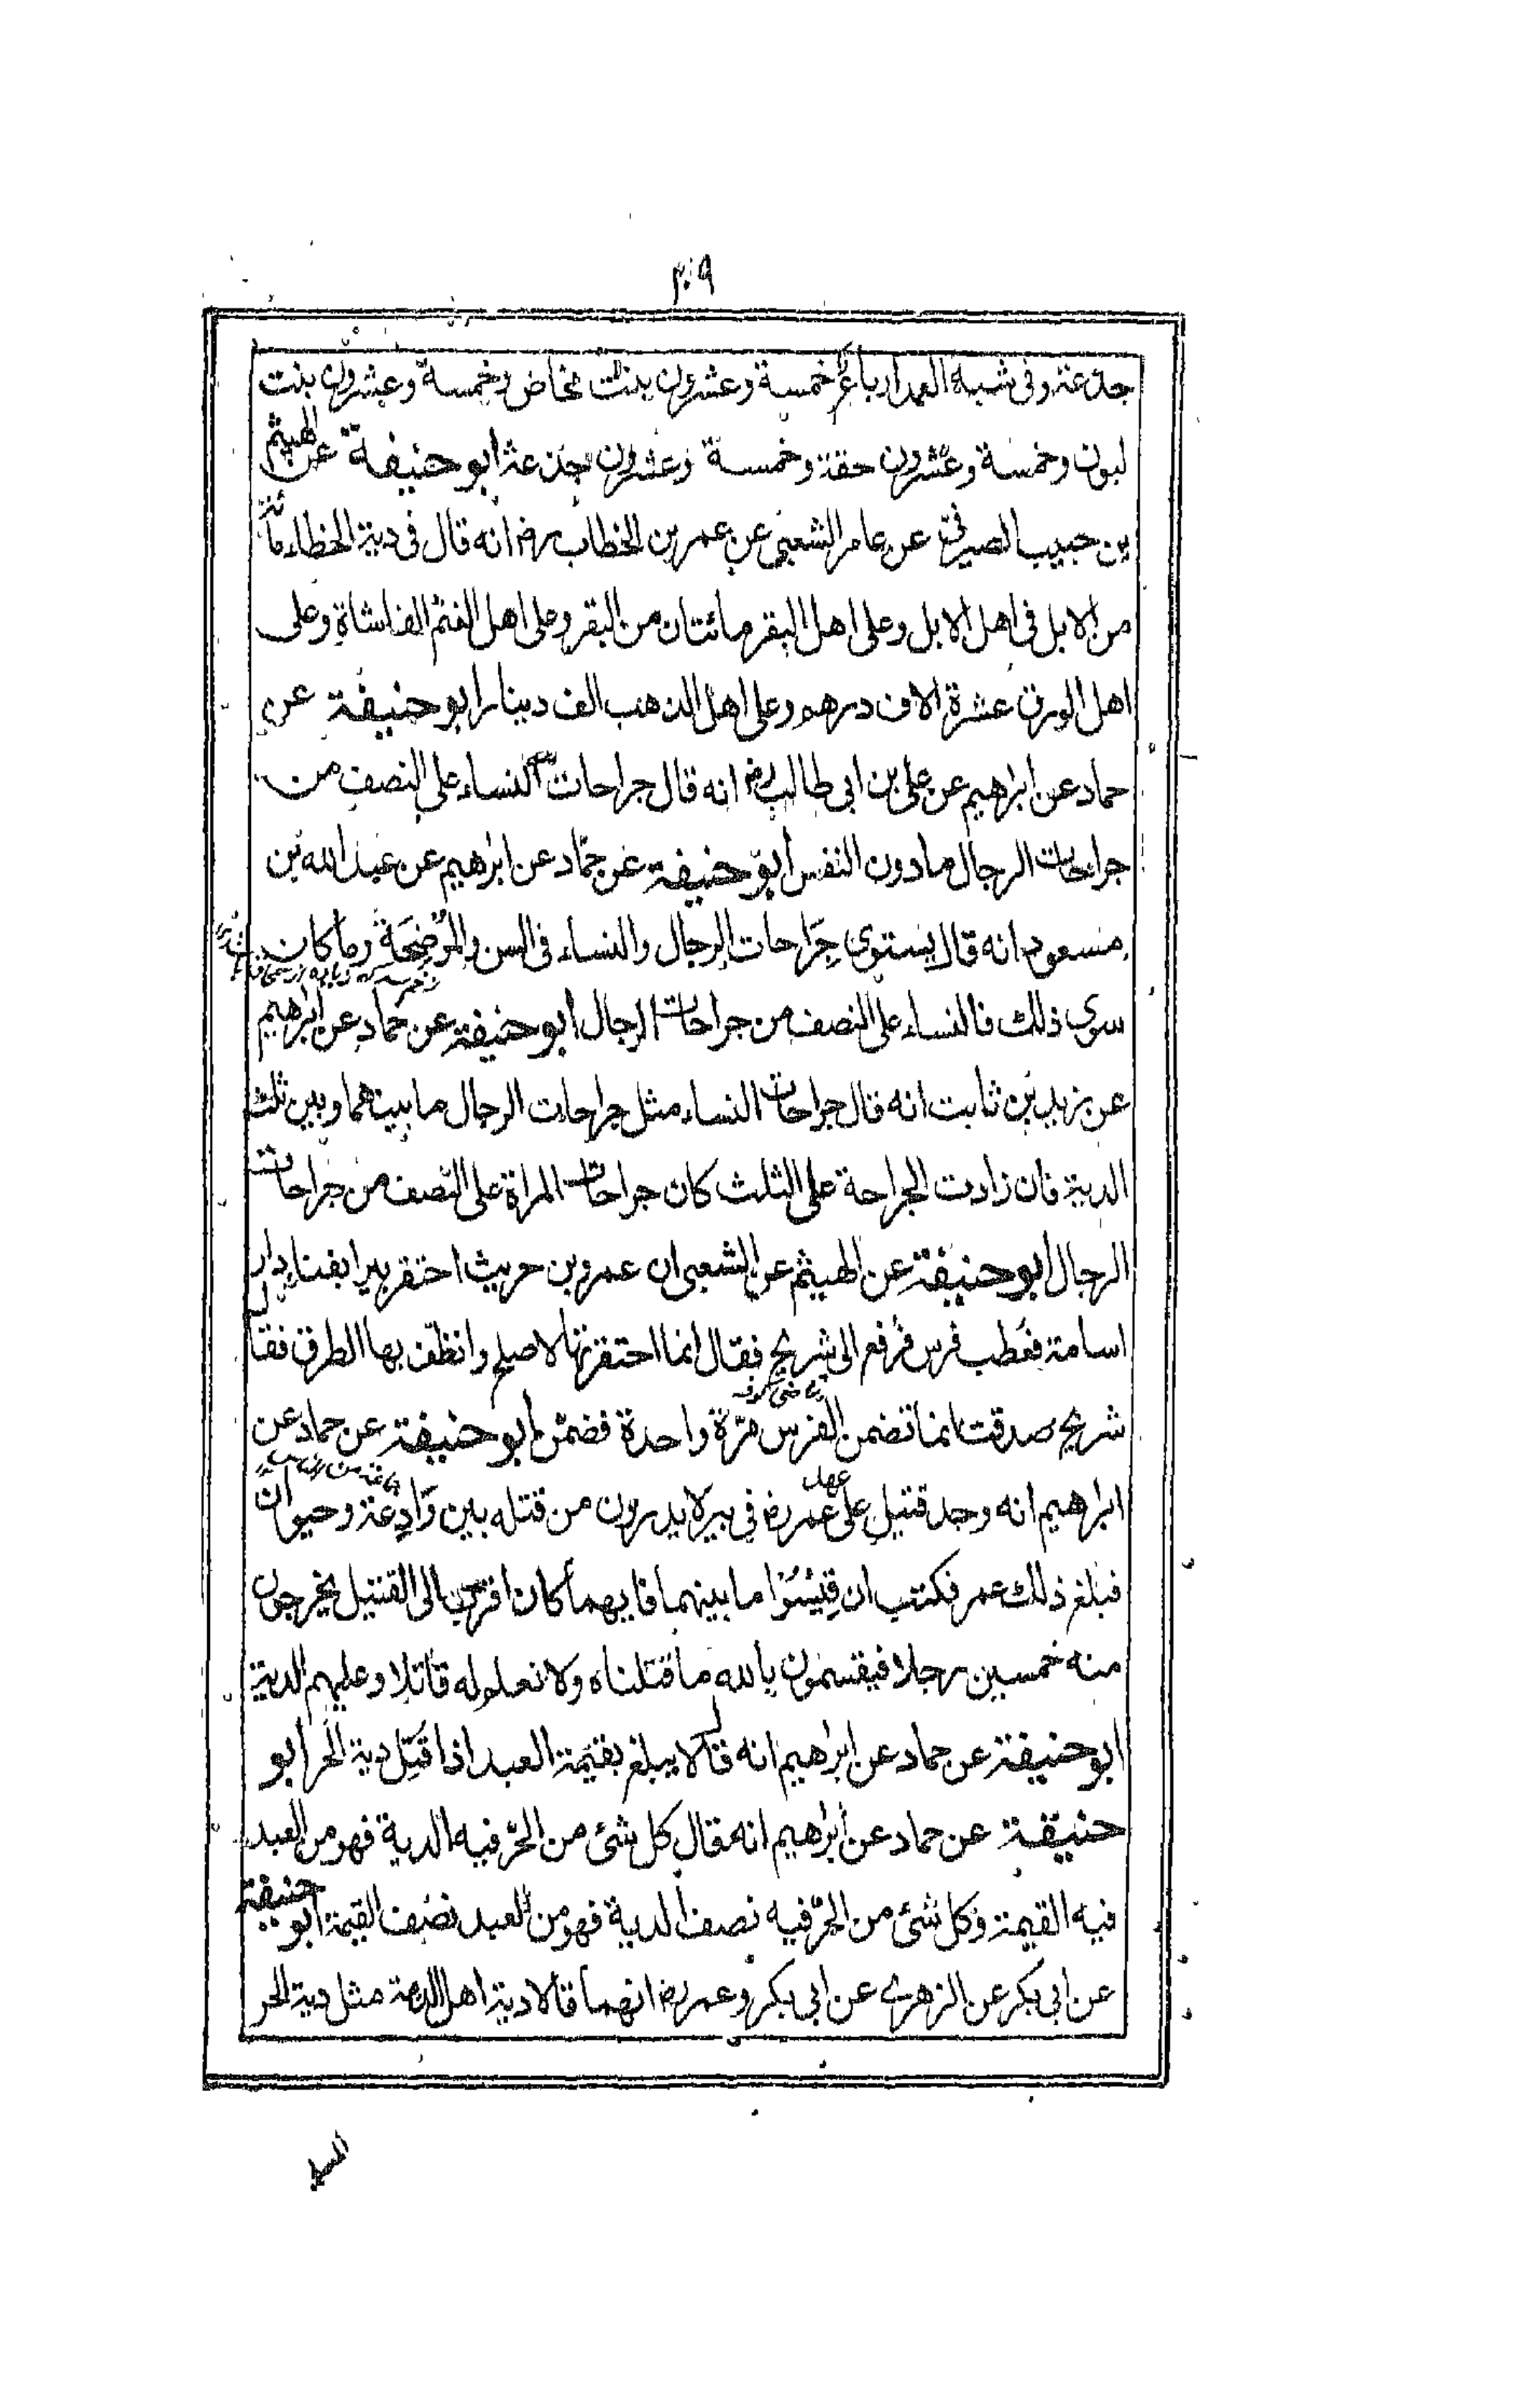 ٣٠٩
جذعة وفى شبه العمد ارباعا خمسة وعشرون بنت مخاض وخمسة وعشرون بنت
لبون وخمسة وعشرون حقة وخمسة وعشرون جذعة ابو حنيفة عن الهيثم
بن حبيب الصيرفى عن عامر الشعبى عن عمر بن الخطاب رض انه قال فى دية الخطاء مائة
من الابل فى اهل الابل وعلى اهل البقر مائتان من البقر وعلى اهل الغنم الفا شاة وعلى
اهل الورق عشرة الاف درهم وعلى اهل الذهب الف دينار ابو حنيفة عن
حماد عن ابراهيم عن على بن ابى طالب رض انه قال جراحات النساء على النصف من
جراحات الرجال ما دون النفس ابو حنيفة عن حمّاد عن ابراهيم عن عبد الله بن
مسعود انه قال يستوى جِرَاحات الرجال والنساء فى السن والمُوْضِحَة وما كان
سوى ذلك فالنساء على النصف من جراحات الرجال ابو حنيفة عن حماد عن ابراهيم
عن زيد بن ثابت انه قال جراحات النساء مثل جراحات الرجال ما بينهما وبين ثلث
الدية فان زادت الجراحة على الثلث كان جراحات المراة على النصف من جراحات
الرجال ابو حنيفة عن الهيثم عن الشعبى ان عمرو بن حريث احتفر بيرا بفناء دار
اسامة فعَطب فرس فرُفع الى شريح فقال انما احتفرتها لاصلح وانظّف بها الطرق فقال
شريح صدقت انما تضمن الفرس مرّة واحدة فضمّن ابو حنيفة عن حماد عن
ابراهيم انه وجد قتيل على عهد عمر رض فى بير لا يدرون من قتله بين وَادِعة وحيوان
فبلغ ذلك عمر فكتب ان قِيْسُوْا ما بينهما فايهما كان اقرب الى القتيل يخرجون
منه خمسين رجلا فيقسمون بالله ما قتلناه ولا نعلم له قاتلا وعليهم الدية
ابو حنيفة عن حماد عن ابراهيم انه قال لا يبلغ بقيمة العبد اذا قُتِل دية الحر ابو
حنيفة عن حماد عن ابراهيم انه قال كل شئ من الحرّ فيه الدية فهو من العبد
فيه القيمة وكل شئ من الحرّ فيه نصف الدية فهو من العبد نصف القيمة ابو حنيفة
عن ابى بكر عن الزهرى عن ابى بكر وعمر رض انهما قالا دية اهل الذمة مثل دية الحر
المسلم